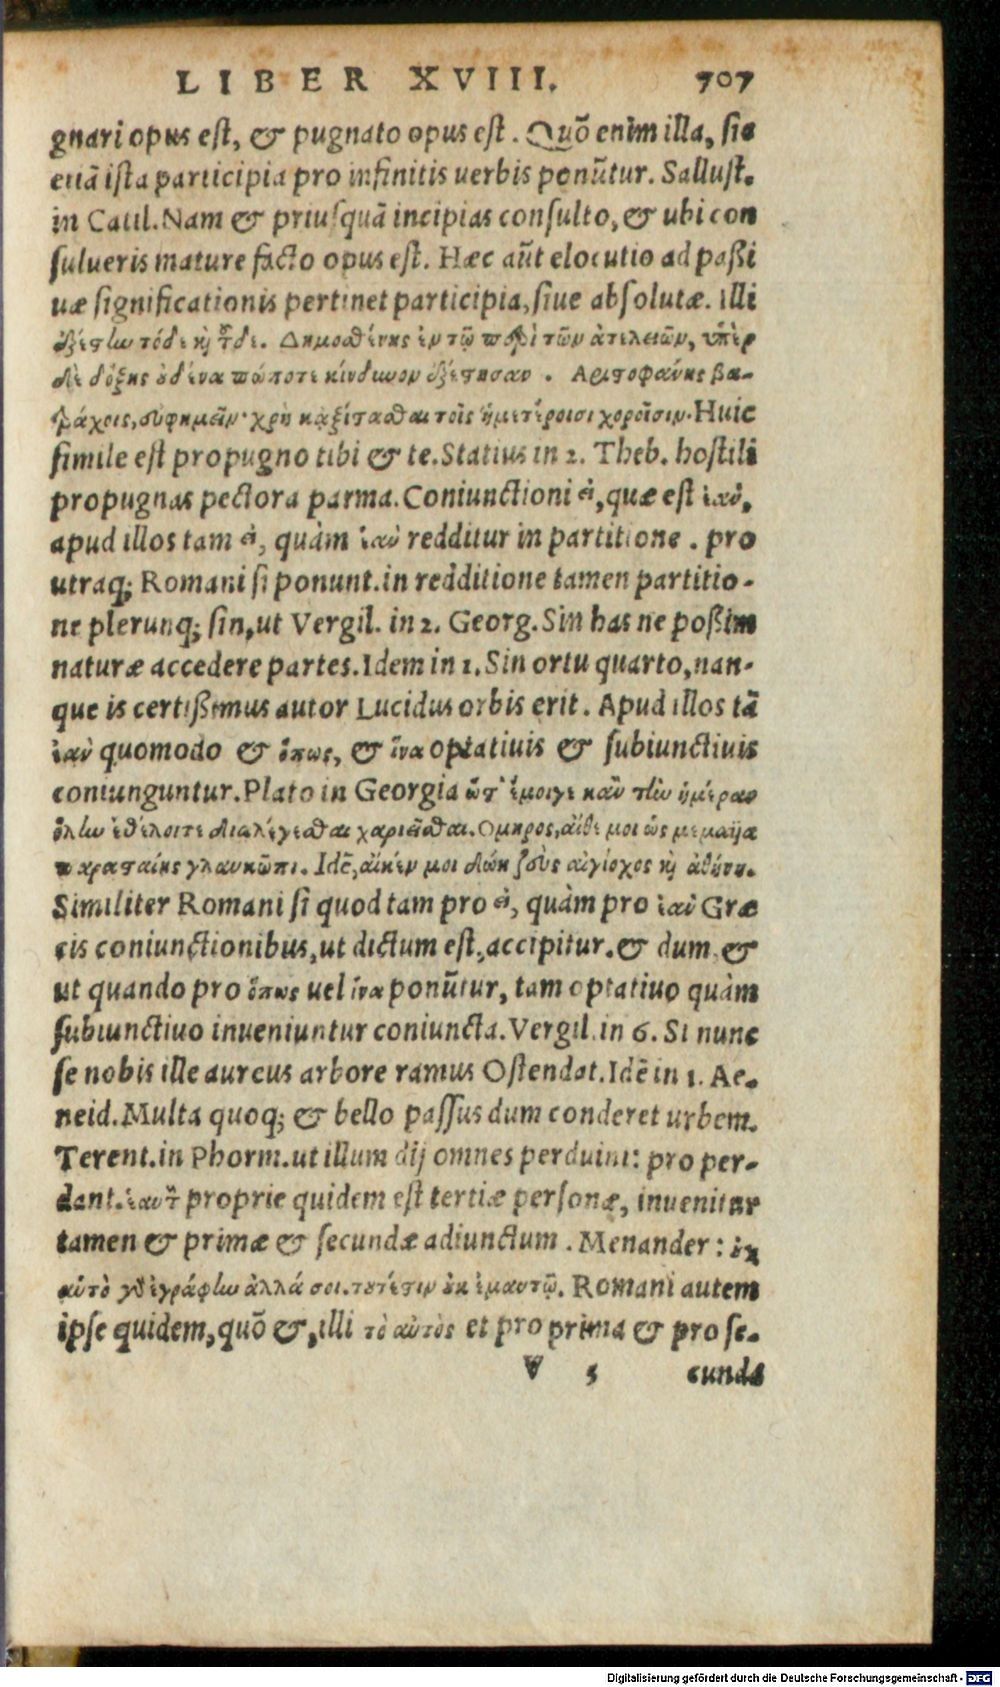 LIBER XVIII. 707
gnari opus est, & pugnato opus est. Quõ enim illa, sic
etiã ista participia pro infinitis uerbis ponũtur. Sallust.
in Catil. Nam & priusquã incipias consulto, & ubi con
sulueris mature facto opus est. Hæc aũt elocutio ad paßi
uæ significationis pertinet participia, siue absolutæ. Illi
τόδε καὶ τῦδε. Δημοσθένης ἐν τῷ περὶ τῶν ἀτελειῶν, ὑπὲρ
δὲ δόξης ὀδένα πώποτε κίνδυνον ἐξέστησαν. Αριστοφάνης βα-
τράχοις, ἐυφημεῖν· χρὴ κἀξίστασθαι τοῖς ἡμετέροισι χοροῖσιν. Huic
simile est propugno tibi & te. Statius in 2. Theb. hostili
propugnas pectora parma. Coniunctioni εἰ, quæ est ἐαν,
apud illos tam εἰ, quàm ἐαν redditur in partitione. pro
utraq; Romani si ponunt. in redditione tamen partitio-
ne plerunq; sin, ut Vergil. in 2. Georg. Sin has ne poßim
naturæ accedere partes. Idem in 1. Sin ortu quarto, nan-
que is certißimus autor Lucidus orbis erit. Apud illos tã
ἐαν quomodo & ὅπως, & ἵνα optatiuis & subiunctiuis
coniunguntur. Plato in Georgia ὥστ' ἔμοιγε κἂν τὴν ἡμέραν
ὅλην ἐθέλοιτε διαλέγεσθαι χαριεῖσθαι. Ομηρος, αἴθε μοι ὣς μεμαυῖα
παρασταίης γλαυκῶπι. Idẽ, αἴκέν μοι δώη ζεὺς αἰγίοχος καὶ ἀθήνη.
Similiter Romani si quod tam pro εἰ, quàm pro ἐαν Græ
cis coniunctionibus, ut dictum est, accipitur. & dum, &
ut quando pro ὅπως uel ἵνα ponũtur, tam optatiuo quàm
subiunctiuo inueniuntur coniuncta. Vergil. in 6. Si nunc
se nobis ille aureus arbore ramus Ostendat. Idẽ in 1. Ae-
neid. Multa quoq; & bello passus dum conderet urbem.
Terent. in Phorm. ut illum dij omnes perduint: pro per-
dant. ἑαυτῦ proprie quidem est tertiæ personæ, inuenitur
tamen & primæ & secundæ adiunctum. Menander: ἐκ
αὑτὸ ἀλλά σοι. τουτέστιν ὀκ ἐμαυτῷ. Romani autem
ipse quidem, quõ &, illi τὸ αὐτὸς et pro prima & pro se-
V 5 cunda
Digitalisierung gefördert durch die Deutsche Forschungsgemeinschaft - DFG